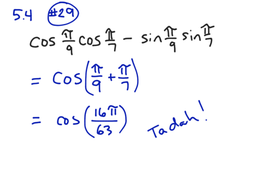 5.4 #29
cos π/9 cos π/7 - sin π/9 sin π/7
= cos(π/9 + π/7)
= cos(16π/63) Tadah!